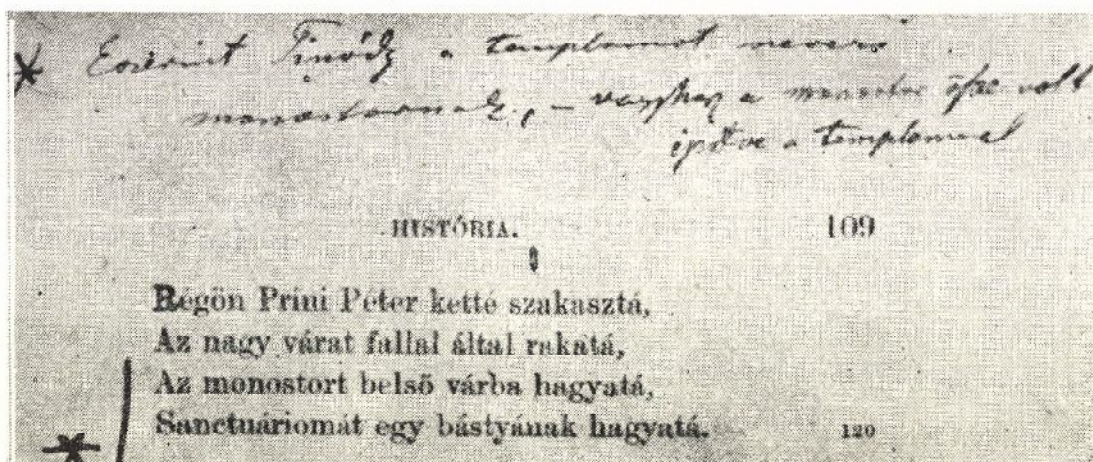 * Eszerint Tinódy a templomot nevezi
monostornak, – vagyhogy a monostor össze volt
építve a templommal
HISTÓRIA. 109
Régön Príni Péter ketté szakasztá,
Az nagy várat fallal által rakatá,
Az monostort belső várba hagyatá,
* Sanctuáriomát egy bástyának hagyatá. 120